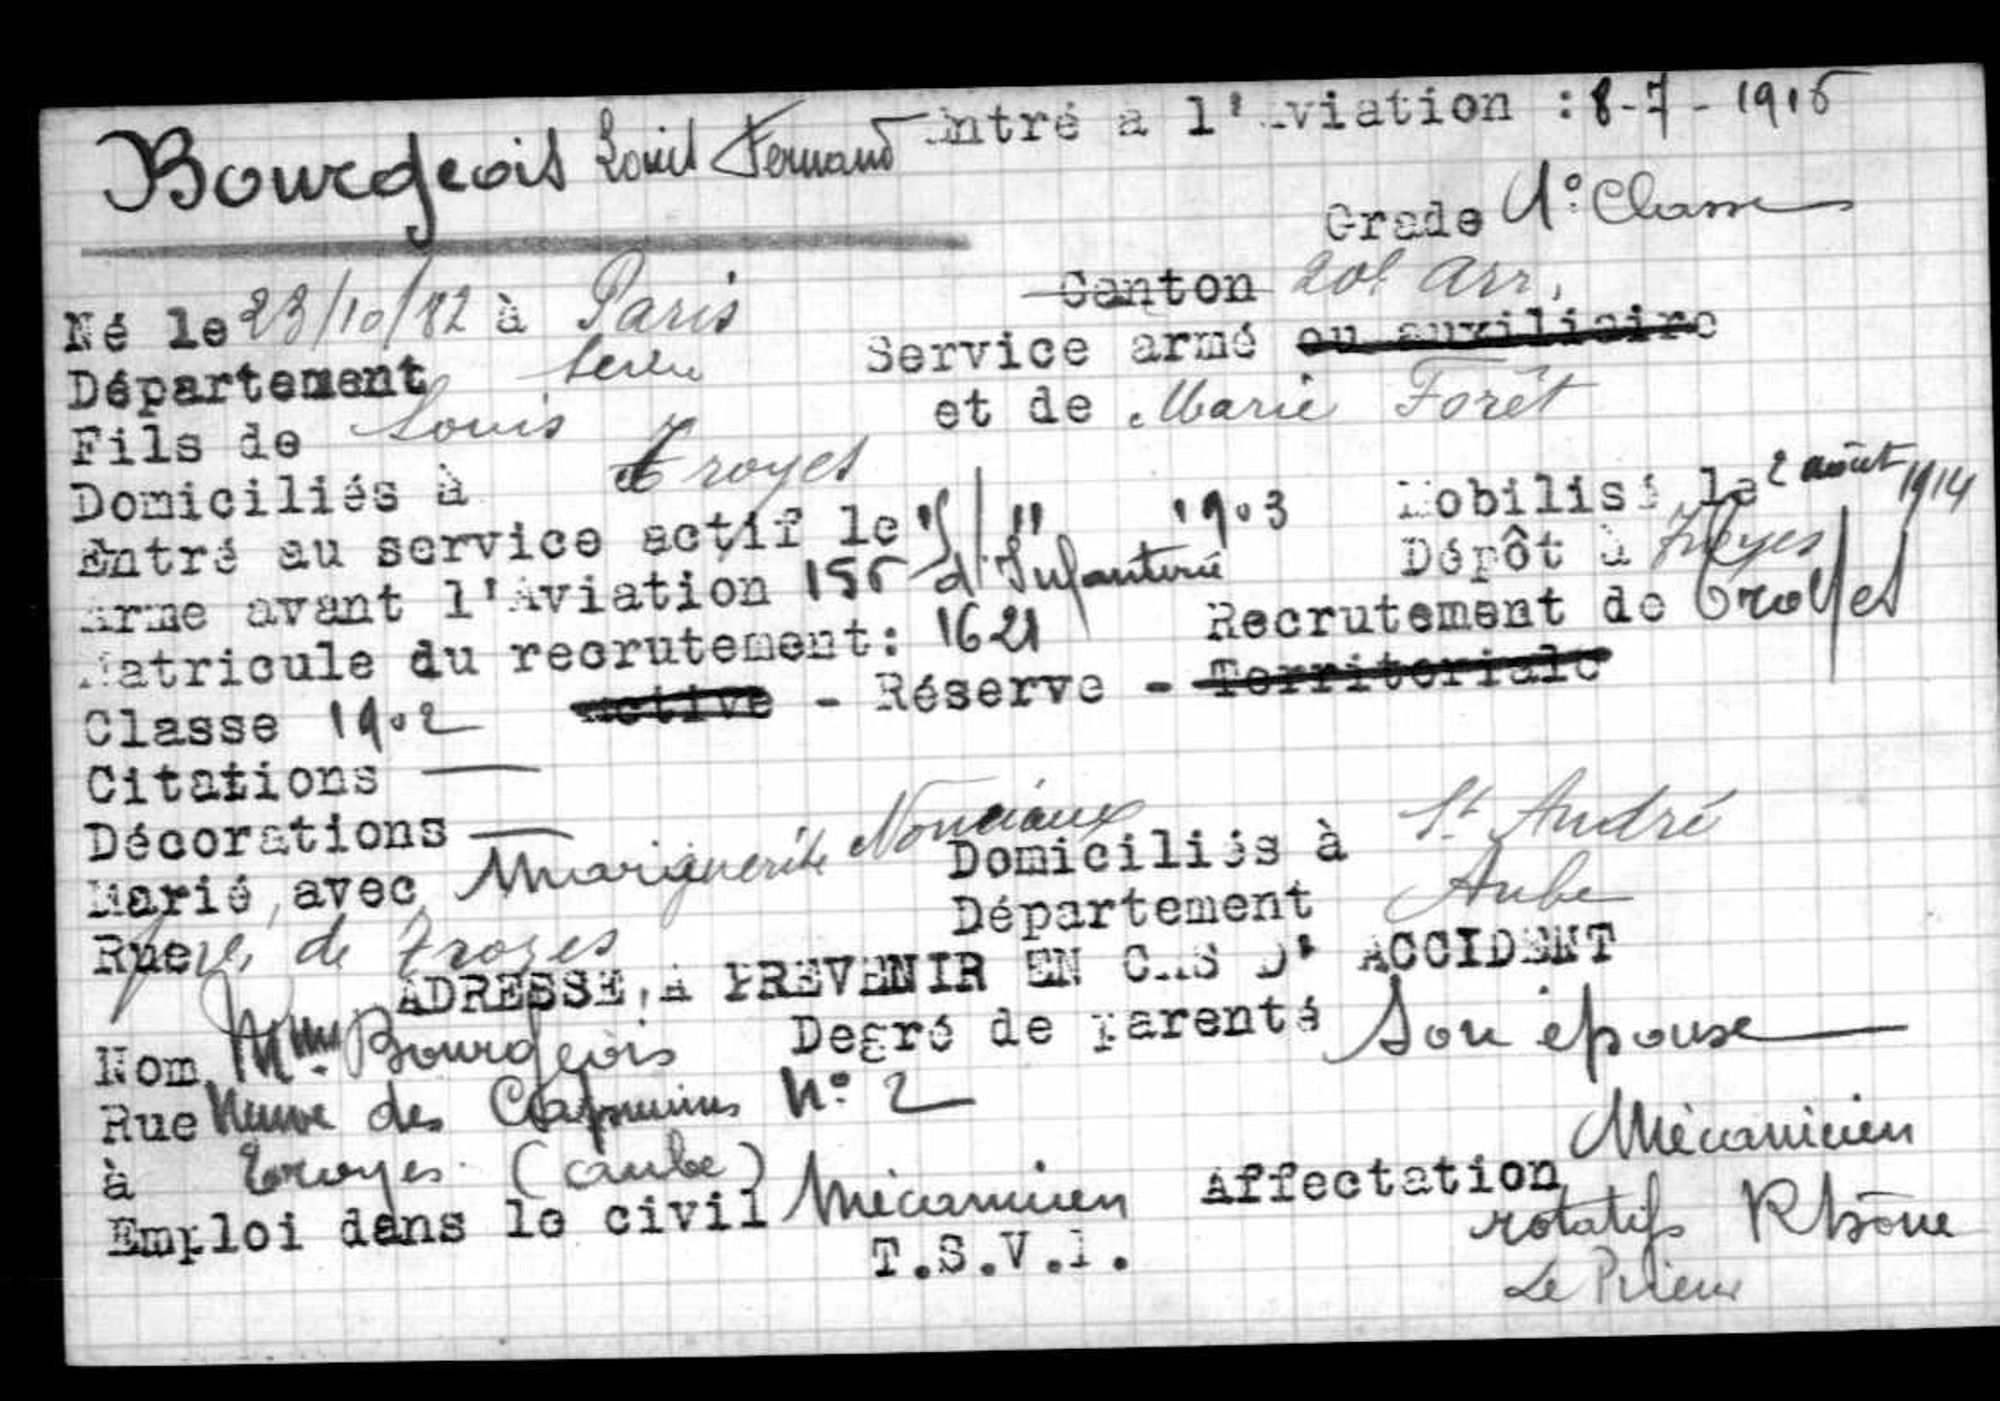 Bourgeois Louis Fernand Entré à l'Aviation : 8-7-1915
Grade 1e Classe
Né le 23/10/82 à Paris Canton 20e Arr,
Département Seine Service armé ou auxiliaire
Fils de Louis et de Marie Forêt
Domiciliés à Troyes
Entré au service actif le 1903 Mobilisé le 2 août 1914
Arme avant l'Aviation d'Infanterie Dépôt à Troyes
Matricule du recrutement: 1621 Recrutement de Troyes
Classe 1902 Active - Réserve - Territoriale
Citations —
Décorations —
Marié, avec Marguerite Domiciliés à St André
Rue de Troyes Département Aube
ADRESSE A PREVENIR EN CAS D' ACCIDENT
Nom Mme Bourgeois Degré de parenté Son épouse
Rue Neuve des Capucins N° 2
à Troyes (Aube)
Emploi dans le civil Mécanicien Affectation Mécanicien
T.S.V.P. rotatifs Rhône
Le Prieur